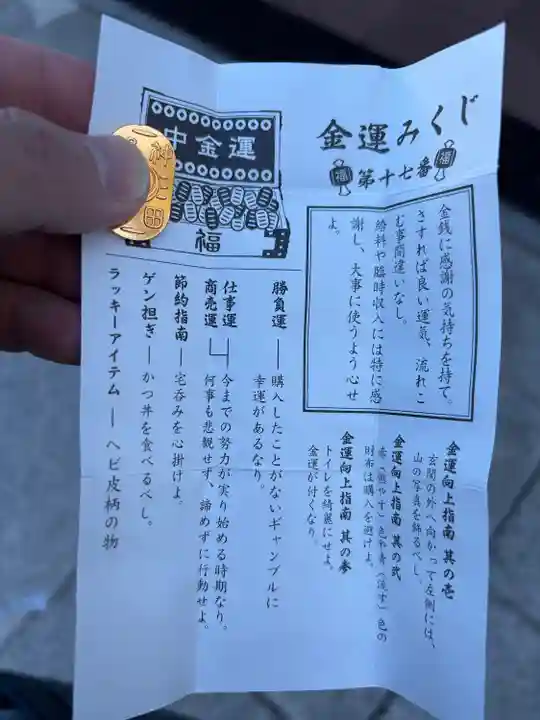 金運みくじ
福
第十七番
福
金銭に感謝の気持ちを持て。
さすれば良い運気、流れこ
む事間違いなし。
給料や臨時収入には特に感
謝し、大事に使うよう心せ
よ。
金運向上指南 其の壱
玄関の外へ向かって左側には、
山の写真を飾るべし。
金運向上指南 其の弐
赤(燃やす)色や青(流す)色の
財布は購入を避けよ。
金運向上指南 其の参
トイレを綺麗にせよ。
金運が付くなり。
中金運
福
勝負運―購入したことがないギャンブルに
幸運があるなり。
仕事運
商売運
今までの努力が実り始める時期なり。
何事も悲観せず、諦めずに行動せよ。
節約指南―宅呑みを心掛けよ。
ゲン担ぎ―かつ丼を食べるべし。
ラッキーアイテム―ヘビ皮柄の物
神田